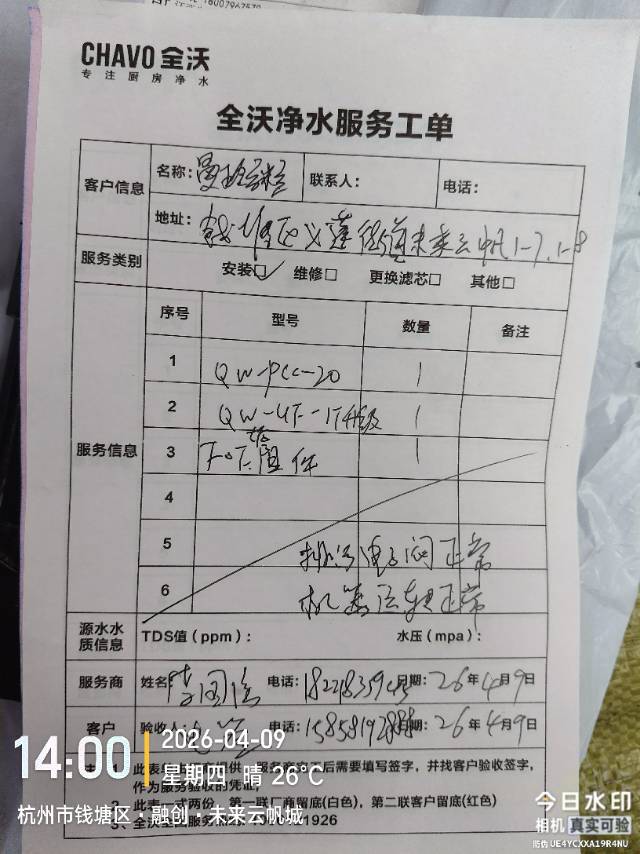 CHAVO 全沃
专注厨房净水
全沃净水服务工单
客户信息
名称:
联系人:
电话:
地址: 钱塘区义蓬街道未来云帆1-7、1-8
服务类别
安装☑ 维修□ 更换滤芯□ 其他□
服务信息
序号 型号 数量 备注
1 QW-PCC-20 1
2 QW-UF-1T升级 1
3 1
4
5 排污电子阀正常
6 机器运转正常
源水水质信息
TDS值(ppm): 水压(mpa):
服务商 姓名 电话: 期: 26年4月9日
客户 验收人: 电话: 期: 26年4月9日
此表 后需要填写签字,并找客户验收签字,
作为服务验收的凭证;
2、此表一式两份,第一联厂商留底(白色),第二联客户留底(红色)
3、全沃全国服务 1926
14:00
2026-04-09
星期四 晴 26°C
杭州市钱塘区·融创·未来云帆城
今日水印
相机 真实可验
防伪 UE4YCXXA19R4NU